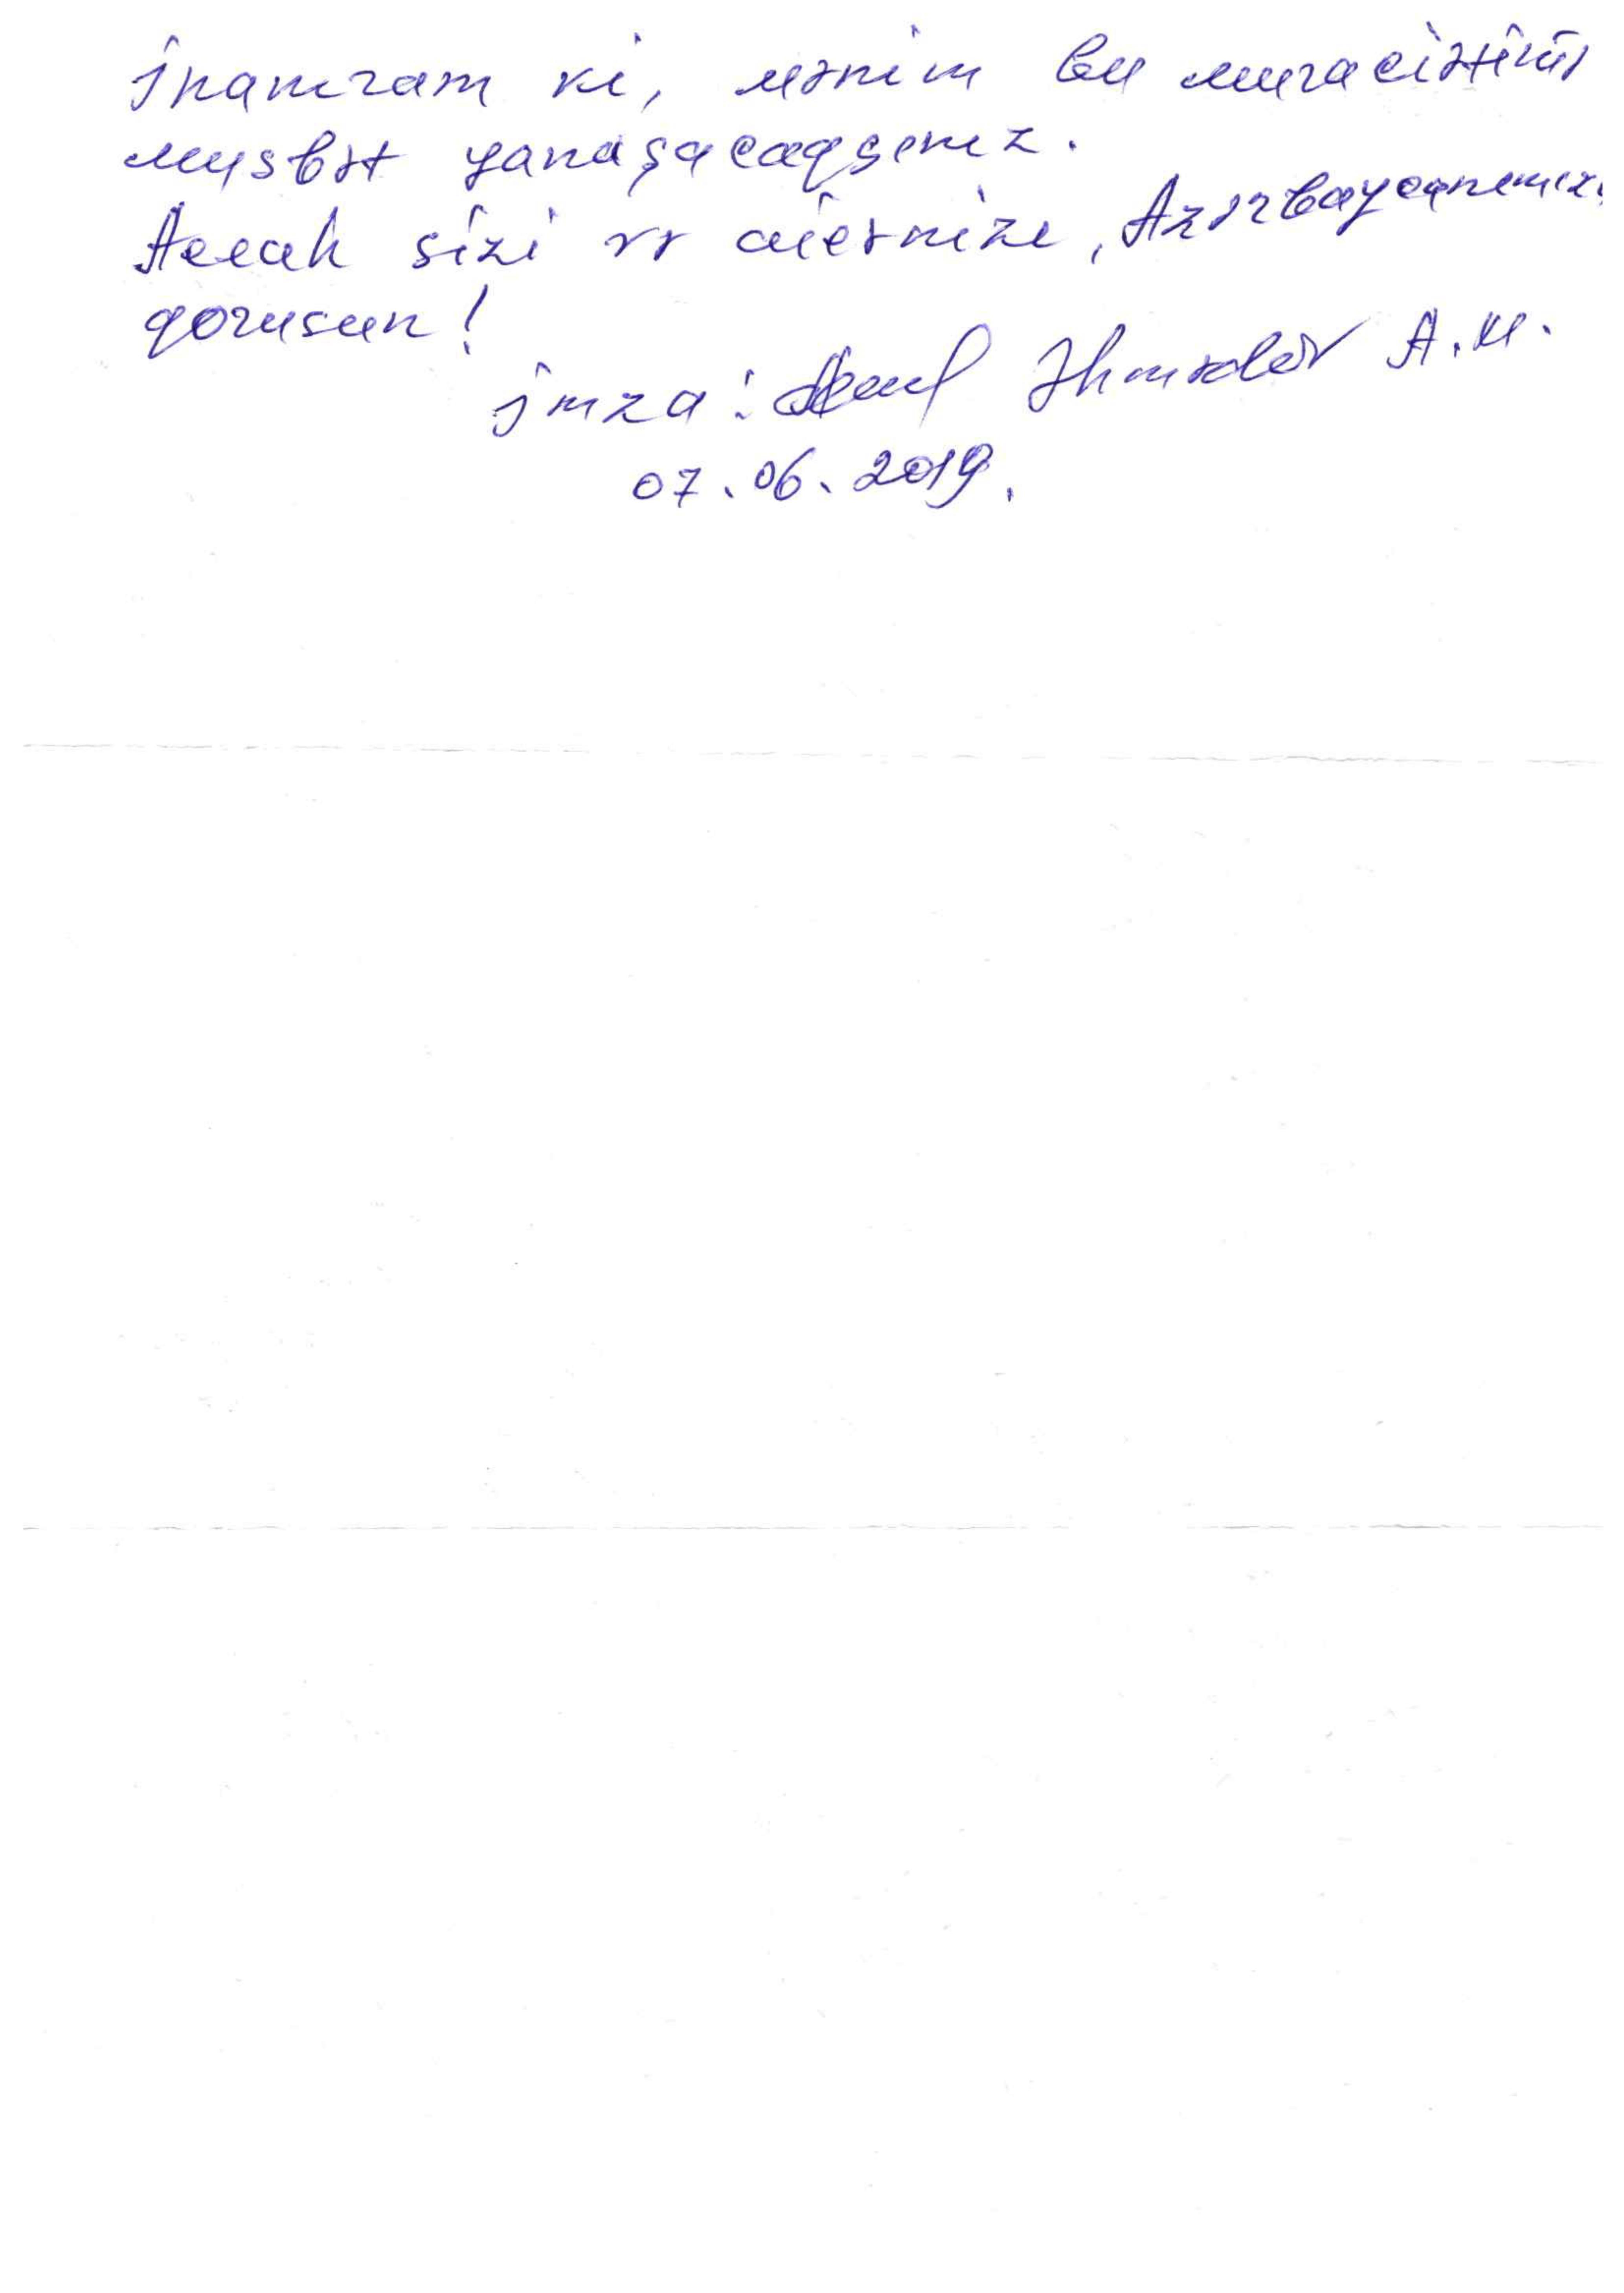 İnanıram ki, mənim bu muraciətimə
musbət yanaşacaqsınız.
Allah sizi və ailənizi, Azərbaycanımızı
qorusun!
İmza: Əhmədov A.M.
07.06.2019.